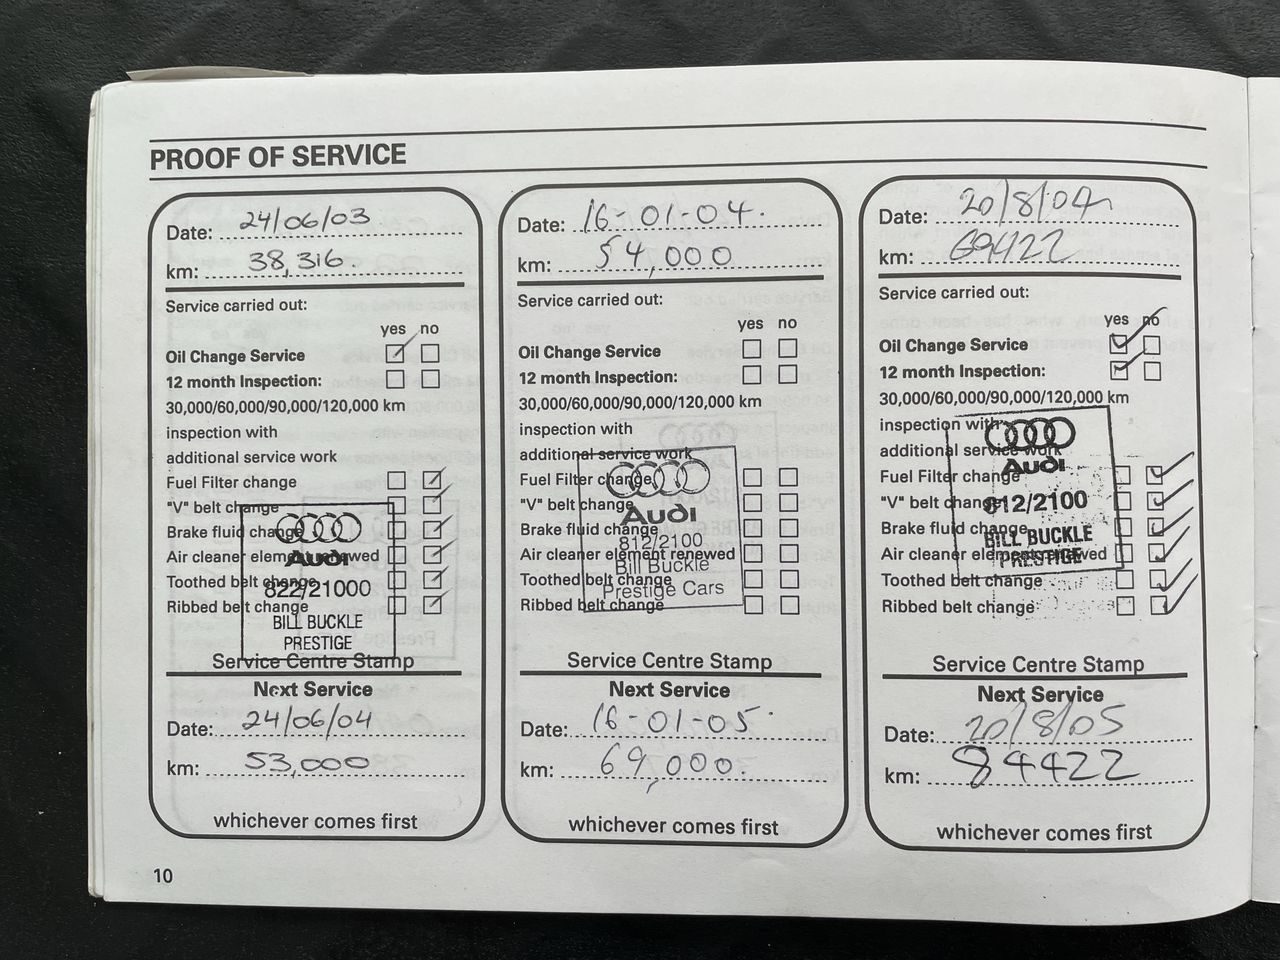 PROOF OF SERVICE
Date: 24/06/03
km: 38,316.
Service carried out:
yes no
Oil Change Service
12 month Inspection:
30,000/60,000/90,000/120,000 km
inspection with
additional service work
Fuel Filter change
"V" belt change
Brake fluid change
Air cleaner element renewed
Toothed belt change
Ribbed belt change
Audi
822/21000
BILL BUCKLE
PRESTIGE
Service Centre Stamp
Next Service
Date: 24/06/04
km: 53,000
whichever comes first
Date: 16-01-04.
km: 54,000
Service carried out:
yes no
Oil Change Service
12 month Inspection:
30,000/60,000/90,000/120,000 km
inspection with
additional service work
Fuel Filter change
"V" belt change
Brake fluid change
Air cleaner element renewed
Toothed belt change
Ribbed belt change
Audi
812/2100
Bill Buckle
Prestige Cars
Service Centre Stamp
Next Service
Date: 16-01-05.
km: 69,000.
whichever comes first
Date: 20/8/04
km: 69422
Service carried out:
yes no
Oil Change Service
12 month Inspection:
30,000/60,000/90,000/120,000 km
inspection with
additional service work
Fuel Filter change
"V" belt change
Brake fluid change
Air cleaner element renewed
Toothed belt change
Ribbed belt change
Audi
812/2100
BILL BUCKLE
PRESTIGE
Service Centre Stamp
Next Service
Date: 20/8/05
km: 84422
whichever comes first
10